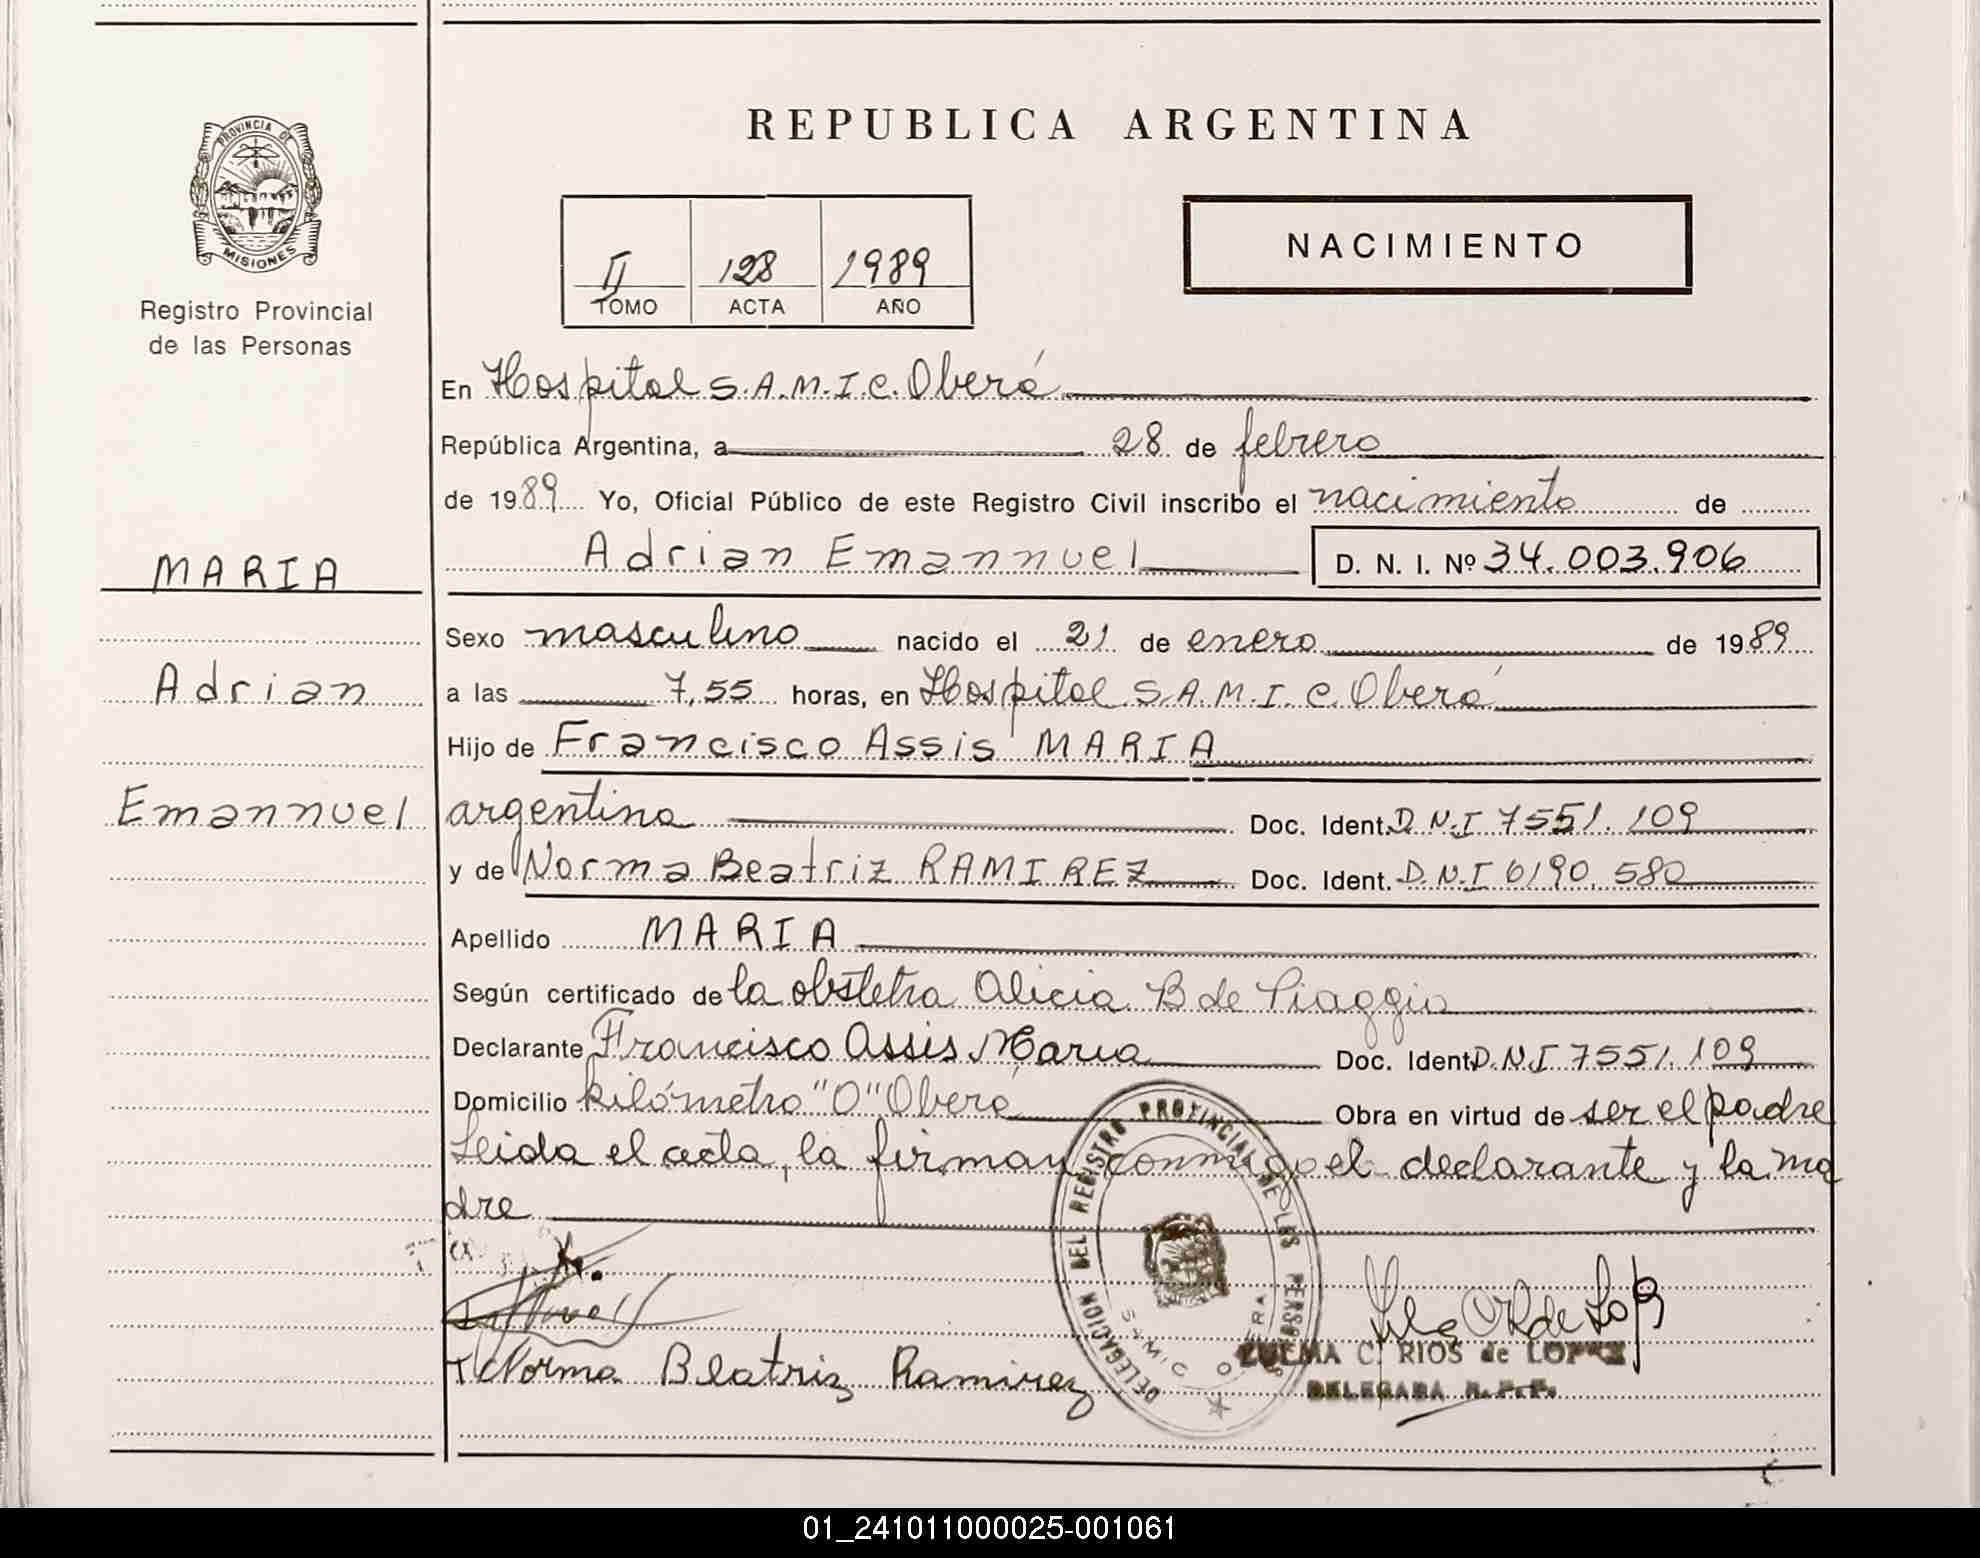 PROVINCIA DE
MISIONES
Registro Provincial
de las Personas
MARIA
Adrian
Emannuel
REPUBLICA ARGENTINA
II 128 1989
TOMO ACTA AÑO
NACIMIENTO
En Hospital S.A.M.I.C. Oberá
República Argentina, a 28 de febrero
de 1989 Yo, Oficial Público de este Registro Civil inscribo el nacimiento de
Adrian Emannuel D. N. I. Nº 34.003.906
Sexo masculino nacido el 21 de enero de 1989
a las 7,55 horas, en Hospital S.A.M.I.C. Oberá
Hijo de Francisco Assis MARIA
argentina Doc. Ident. D.N.I 7551.109
y de Norma Beatriz RAMIREZ Doc. Ident. D.N.I 6190.580
Apellido MARIA
Según certificado de la obstetra Alicia B de Piaggio
Declarante Francisco Assis Maria Doc. Ident. D.N.I 7551.109
Domicilio kilómetro "0" Oberá Obra en virtud de ser el padre
Leida el acta, la firman conmigo el declarante y la ma
dre
Norma Beatriz Ramirez
DELEGACION DEL REGISTRO PROVINCIAL DE LAS PERSONAS
SAMIC OBERA
ZULMA C. RIOS de LOPEZ
DELEGADA R.P.P.
01_241011000025-001061